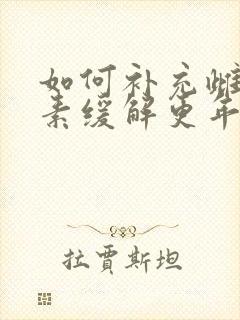 如何补充雌
素缓解更年
拉贾斯坦